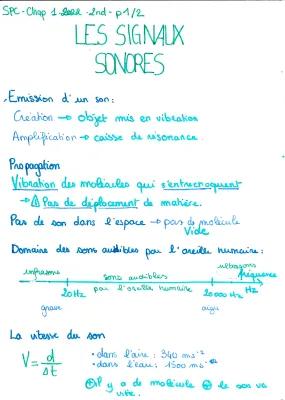 SPC - Chap 1 - 2nd - p1/2
LES SIGNAUX
SONORES
Emission d'un son:
Création → objet mis en vibration
Amplification → caisse de résonance.
Propagation
Vibration des molécules qui s'entrechoquent
→ ⚠ Pas de déplacement de matière.
Pas de son dans l'espace → pas de molécule
Vide
Domaine des sons audibles par l'oreille humaine:
infrasons sons audibles ultrasons
par l'oreille humaine fréquence
20Hz 20 000 Hz Hz
grave aigu
La vitesse du son
V = d / Δt
• dans l'aire: 340 ms⁻¹
• dans l'eau: 1500 ms⁻¹
⊕ il y a de molécule ⊕ le son va
vite.